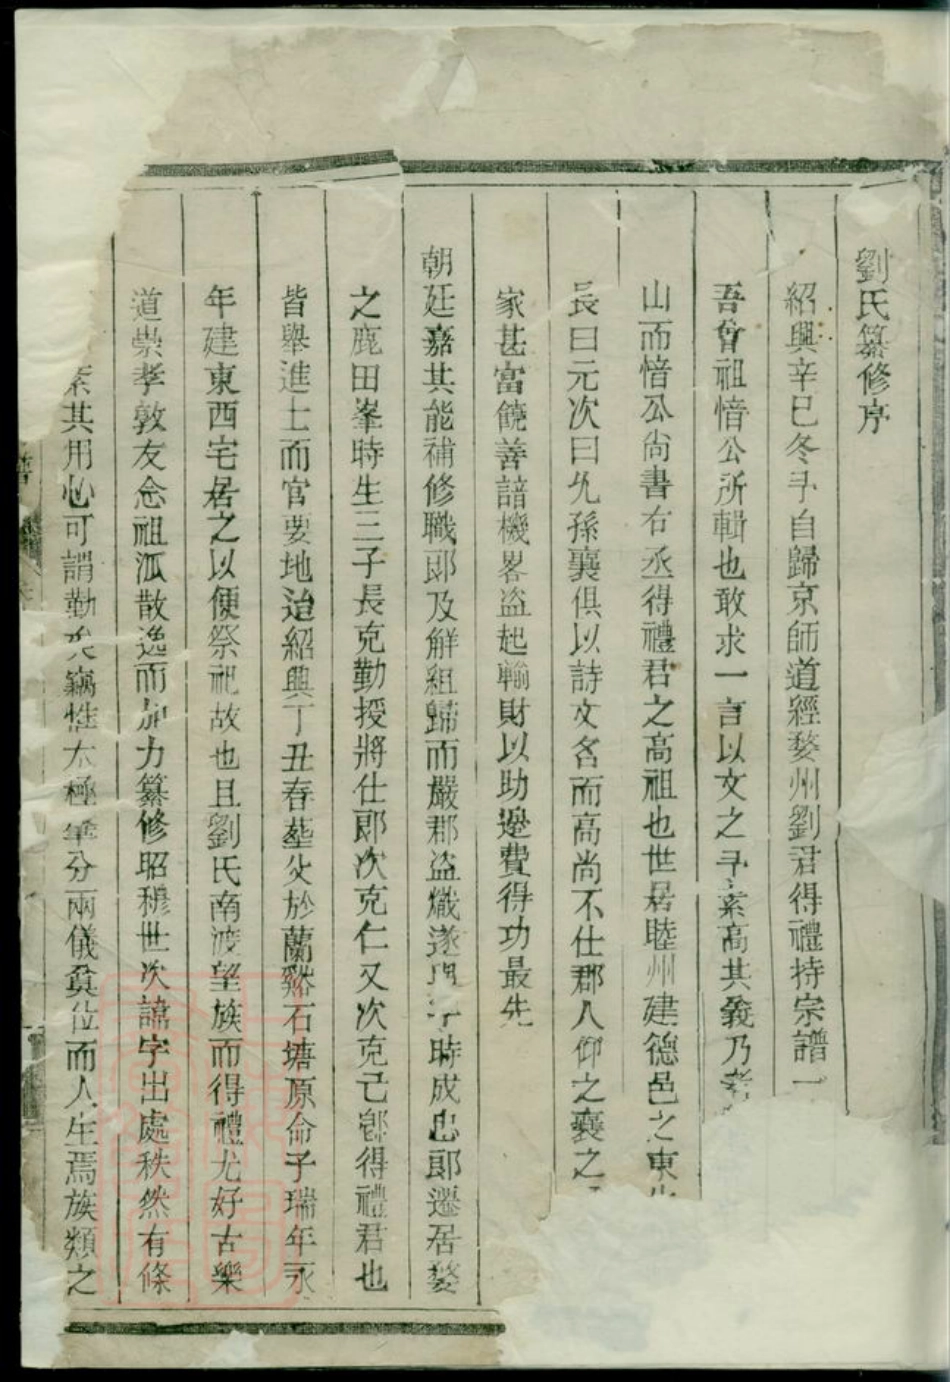 劉氏纂修序
紹興辛巳冬予自歸京師道經婺州劉君得禮持宗譜一
吾曾祖愔公所輯也敢求一言以文之予素高其義乃
山而愔公尚書右丞得禮君之高祖也世居睦州建德邑之東
長曰元次曰允孫襄俱以詩文名而高尚不仕郡人仰之襄之
家甚富饒善諳機畧盗起輸財以助邊費得功最先
朝廷嘉其能補修職郎及解組歸而嚴郡盗熾遂 時成忠郎遷居婺
之鹿田峯時生三子長克勤授將仕郎次克仁又次克己卽得禮君也
皆舉進士而官要地迨紹興丁丑春塟父於蘭谿石塘原命子瑞年永
年建東西宅居之以便祭祀故也且劉氏南渡望族而得禮尤好古樂
道崇孝敦友念祖派散逸而加力纂修昭穆世次諱字出處秩然有條
其用心可謂勤矣竊惟太極肇分兩儀奠位而人生焉族類之